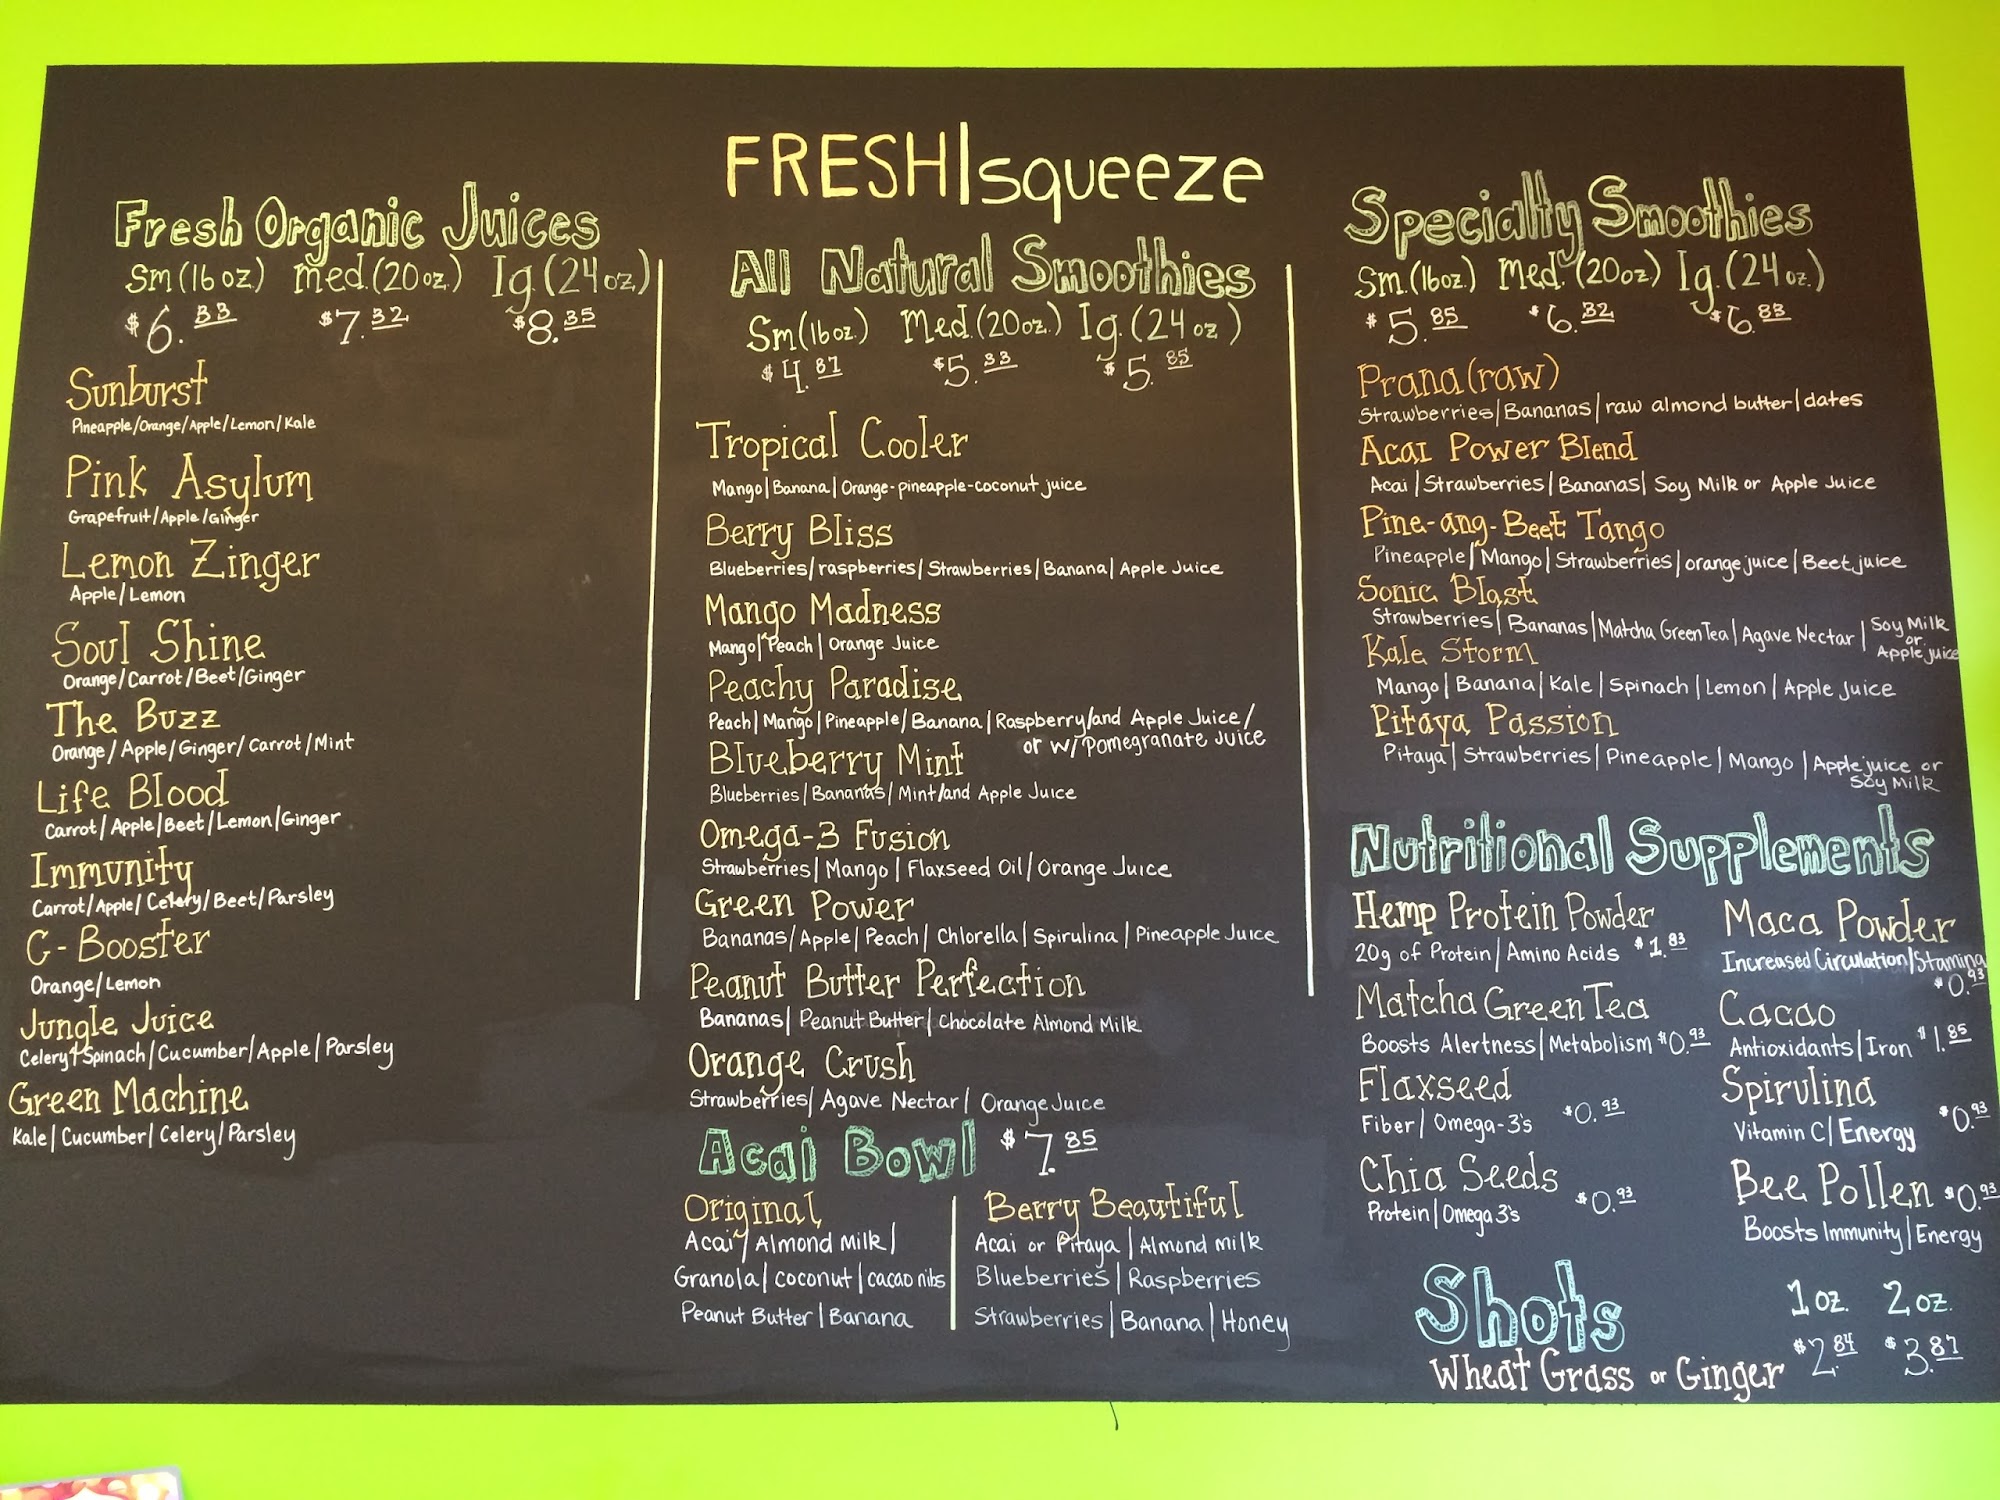 FRESH|squeeze
Fresh Organic Juices
Sm (16 oz) Med. (20 oz.) lg. (24 oz)
$6.33 $7.32 $8.35
Sunburst
Pineapple/Orange/Apple/Lemon/Kale
Pink Asylum
Grapefruit/Apple/Ginger
Lemon Zinger
Apple/Lemon
Soul Shine
Orange/Carrot/Beet/Ginger
The Buzz
Orange/Apple/Ginger/Carrot/Mint
Life Blood
Carrot/Apple/Beet/Lemon/Ginger
Immunity
Carrot/Apple/Celery/Beet/Parsley
C-Booster
Orange/Lemon
Jungle Juice
Celery/Spinach/Cucumber/Apple/Parsley
Green Machine
Kale/Cucumber/Celery/Parsley
All Natural Smoothies
Sm (16 oz.) Med. (20 oz.) lg. (24 oz)
$4.87 $5.33 $5.85
Tropical Cooler
Mango|Banana|Orange-pineapple-coconut juice
Berry Bliss
Blueberries/raspberries/Strawberries/Banana|Apple Juice
Mango Madness
Mango|Peach|Orange Juice
Peachy Paradise
Peach|Mango|Pineapple/Banana|Raspberry/and Apple Juice/
or w/ Pomegranate Juice
Blueberry Mint
Blueberries/Bananas/Mint/and Apple Juice
Omega-3 Fusion
Strawberries|Mango|Flaxseed Oil/Orange Juice
Green Power
Bananas/Apple|Peach|Chlorella|Spirulina|Pineapple Juice
Peanut Butter Perfection
Bananas|Peanut Butter|Chocolate Almond Milk
Orange Crush
Strawberries/Agave Nectar/Orange Juice
Acai Bowl $7.85
Original
Acai/Almond Milk|
Granola|coconut|cacao nibs
Peanut Butter|Banana
Berry Beautiful
Acai or Pitaya|Almond milk
Blueberries|Raspberries
Strawberries|Banana|Honey
Specialty Smoothies
Sm. (16 oz.) Med. (20 oz) lg. (24 oz.)
$5.85 $6.32 $6.83
Prana (raw)
Strawberries/Bananas/raw almond butter|dates
Acai Power Blend
Acai|Strawberries|Bananas|Soy Milk or Apple Juice
Pine-ang-Beet Tango
Pineapple/Mango|Strawberries/orange juice|Beet juice
Sonic Blast
Strawberries|Bananas|Matcha Green Tea|Agave Nectar|Soy Milk
or
Apple juice
Kale Storm
Mango|Banana|Kale|Spinach|Lemon|Apple Juice
Pitaya Passion
Pitaya|Strawberries|Pineapple|Mango|Apple juice or
Soy Milk
Nutritional Supplements
Hemp Protein Powder
20g of Protein/Amino Acids $1.83
Matcha Green Tea
Boosts Alertness/Metabolism $0.93
Flaxseed
Fiber/Omega-3's $0.93
Chia Seeds
Protein/Omega 3's $0.93
Maca Powder
Increased Circulation/Stamina
$0.93
Cacao
Antioxidants/Iron $1.85
Spirulina
Vitamin C/Energy $0.93
Bee Pollen $0.93
Boosts Immunity/Energy
Shots 1 oz. 2 oz.
Wheat Grass or Ginger $2.84 $3.87